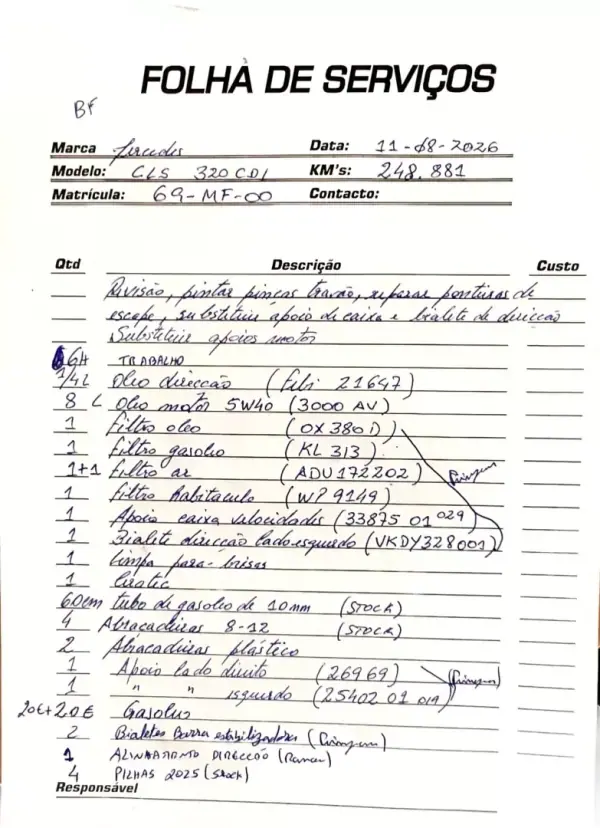 FOLHA DE SERVIÇOS
BF
Marca Mercedes Data: 11-08-2026
Modelo: CLS 320 CDI KM's: 248.881
Matrícula: 69-MF-00 Contacto:
Qtd Descrição Custo
Revisão, pintar pinças travão, reparar ponturas de
escape, substituir apoio de caixa e bialete de direccão
Substituir apoios motor
6H TRABALHO
1/4 L Oleo direccão (febi 21647)
8 L Oleo motor 5W40 (3000 AV)
1 filtro oleo (OX 380 D)
1 filtro gasoleo (KL 313)
1+1 filtro ar (ADU172202)
1 filtro habitaculo (WP 9149)
1 Apoio caixa velocidades (33875 01 029)
1 Bialete direccão lado esquerdo (VKDY328001)
1 limpa para-brisas
1
60cm tubo de gasoleo de 10mm (STOCK)
4 Abracadeiras 8-12 (STOCK)
2 Abracadeiras plástico
1 Apoio lado direito (26969)
1 " " esquerdo (25402 01 019)
20€+20€ Gasoleo
2 Bialetes Barra estabilizadora
1 ALINHAMENTO DIRECCÃO
4 PILHAS 2025 (Stock)
Responsável